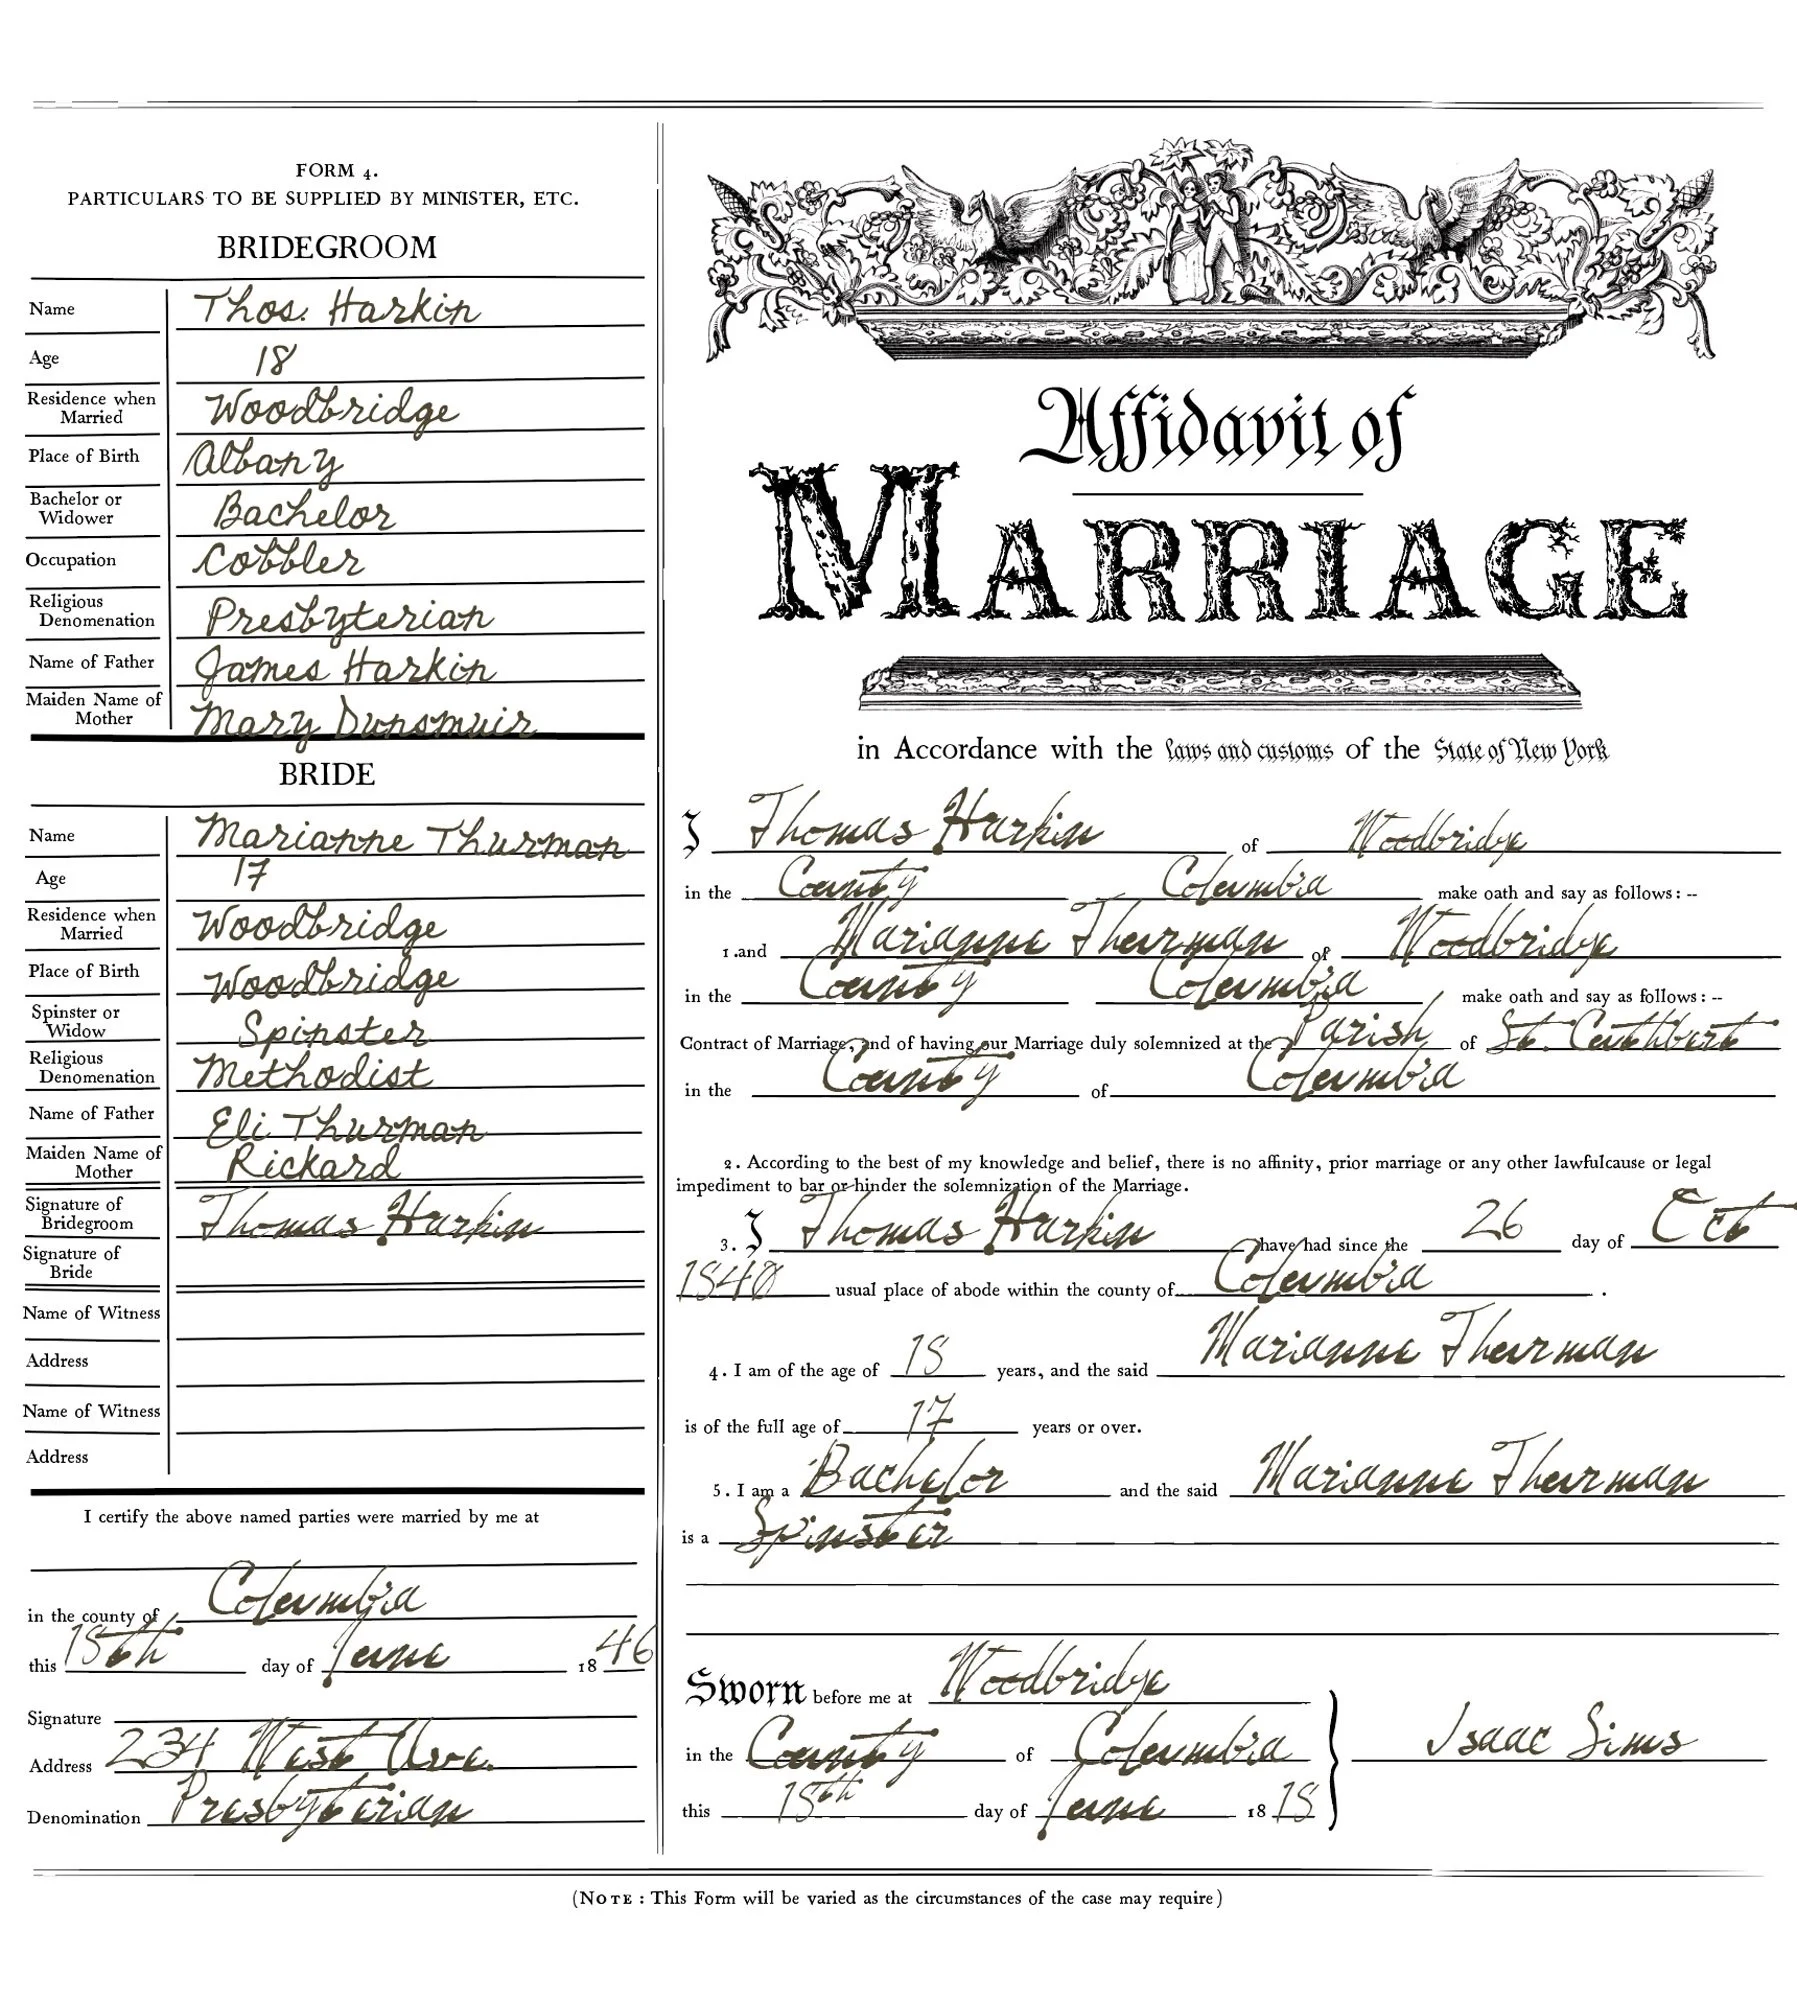 FORM 4.
PARTICULARS TO BE SUPPLIED BY MINISTER, ETC.
BRIDEGROOM
Name Thos. Harkin
Age 18
Residence when Married Woodbridge
Place of Birth Albany
Bachelor or Widower Bachelor
Occupation Cobbler
Religious Denomenation Presbyterian
Name of Father James Harkin
Maiden Name of Mother Mary Dunsmuir
BRIDE
Name Marianne Thurman
Age 17
Residence when Married Woodbridge
Place of Birth Woodbridge
Spinster or Widow Spinster
Religious Denomenation Methodist
Name of Father Eli Thurman
Maiden Name of Mother Rickard
Signature of Bridegroom Thomas Harkin
Signature of Bride
Name of Witness
Address
Name of Witness
Address
I certify the above named parties were married by me at
in the county of Columbia
this 18th day of June 1846
Signature
Address 234 West Ave.
Denomination Presbyterian
Affidavit of
MARRIAGE
in Accordance with the laws and customs of the State of New York
I Thomas Harkin of Woodbridge
in the County Columbia make oath and say as follows: --
1.and Marianne Thurman of Woodbridge
in the County Columbia make oath and say as follows: --
Contract of Marriage, and of having our Marriage duly solemnized at the Parish of St. Cuthbert
in the County of Columbia
2. According to the best of my knowledge and belief, there is no affinity, prior marriage or any other lawfulcause or legal
impediment to bar or hinder the solemnization of the Marriage.
3. I Thomas Harkin have had since the 26 day of Oct
1840 usual place of abode within the county of Columbia.
4. I am of the age of 18 years, and the said Marianne Thurman
is of the full age of 17 years or over.
5. I am a Bachelor and the said Marianne Thurman
is a Spinster
Sworn before me at Woodbridge
in the County of Columbia Isaac Sims
this 18th day of June 1818
(NOTE : This Form will be varied as the circumstances of the case may require)